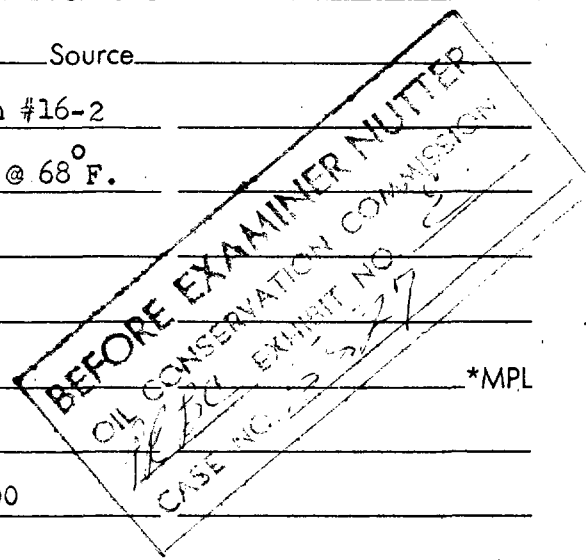 Source
#16-2
@ 68°F.
*MPL
BEFORE EXAMINER NUTTER
OIL CONSERVATION COMMISSION
EXHIBIT NO.
CASE NO.